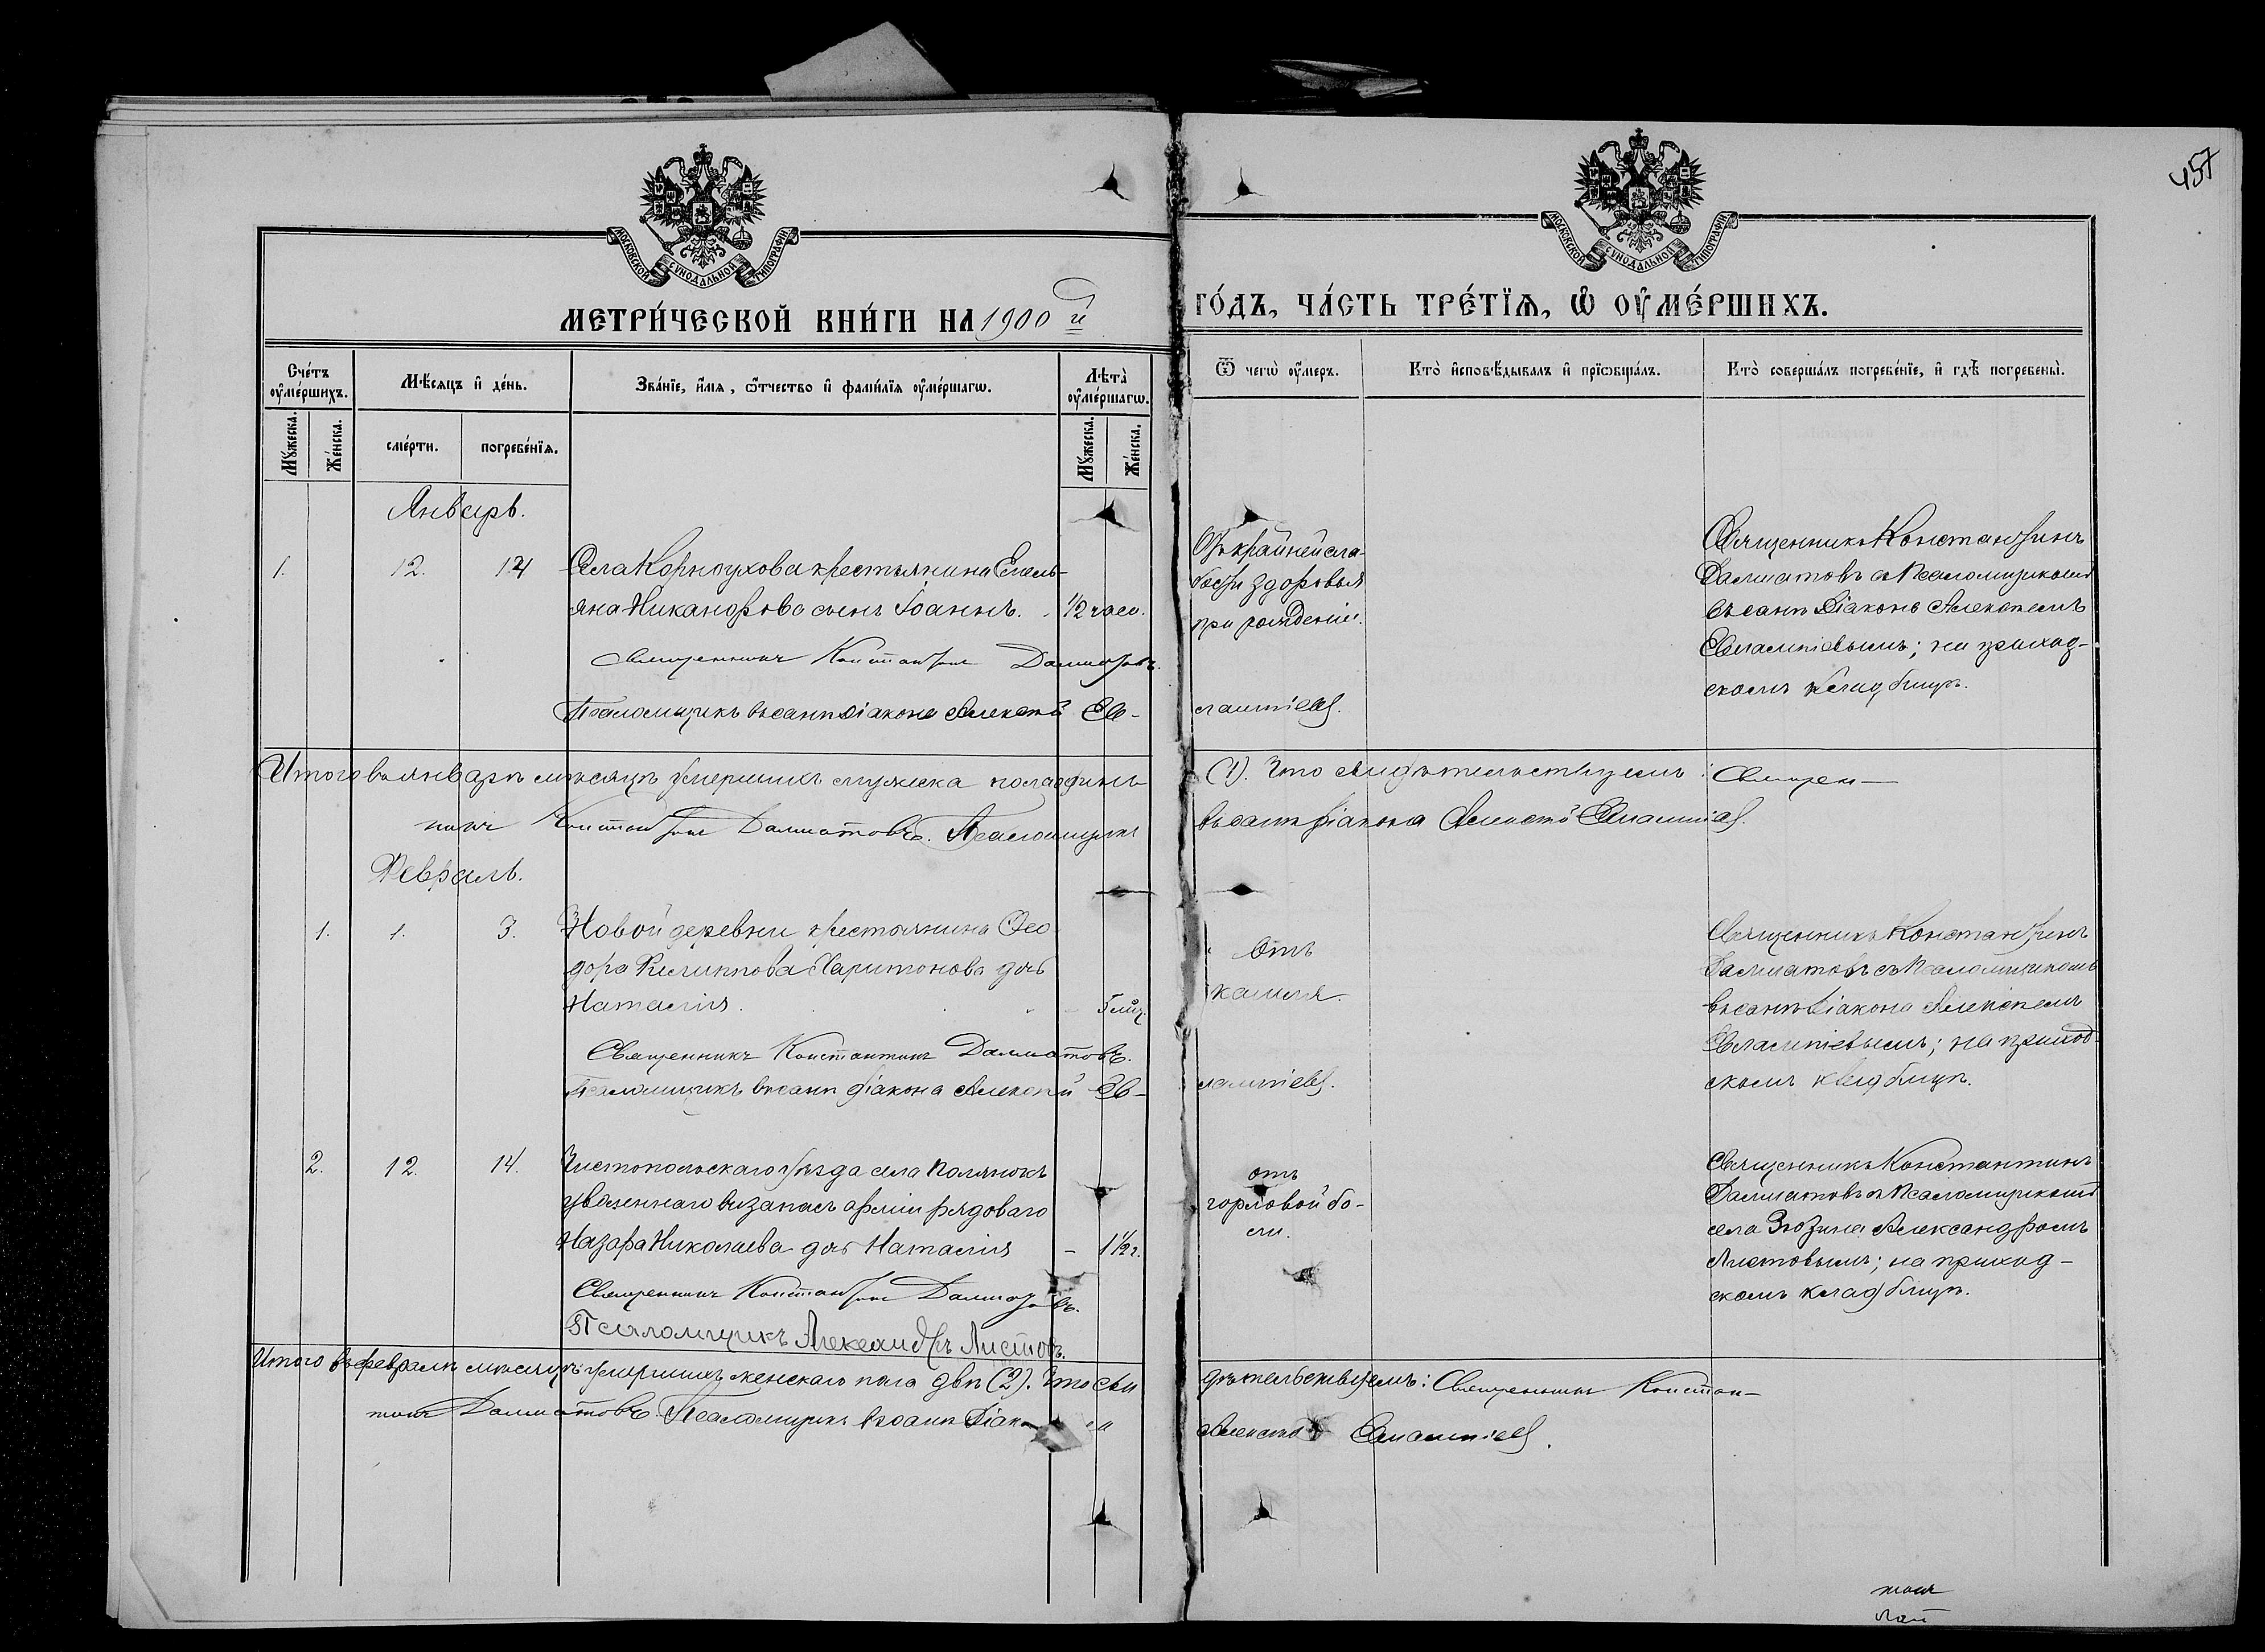 457
МОСКОВСКОЙ СѴНОДАЛЬНОЙ ТИПОГРАФІИ
МОСКОВСКОЙ СѴНОДАЛЬНОЙ ТИПОГРАФІИ
МЕТРИ́ЧЕСКОЙ КНИ́ГИ НА 1900 й ГО́ДЪ, ЧА́СТЬ ТРЕ́ТЇѦ, Ѡ҆ ОУ҆МЕ́РШИХЪ.
Сче́тъ оу҆ме́ршихъ.
Мꙋ́жеска.
Же́нска.
Мѣ́сяцъ и҆ де́нь.
сме́рти.
погребе́нїѧ.
Зва́нїе, и҆́мѧ, ѻ҆́тчество и҆ фами́лїѧ оу҆ме́ршагѡ.
Лѣ̑та̀ оу҆ме́ршагѡ.
Мꙋ́жеска.
Же́нска.
Ѿ чегѡ̀ оу҆́меръ.
Кто̀ и҆сповѣ́дывалъ и҆ прїѡбща́лъ.
Кто̀ соверша́лъ погребе́нїе, и҆ гдѣ̀ погребены̀.
Январь.
1. 12. 14 Села Корноухова крестьянина Емель-
яна Никанорова сынъ Іоаннъ. 1/2 часа.
Отъ крайней сла-
бости здоровья
при рожденіи.
Священникъ Константинъ
Далматовъ съ Псаломщикомъ
въ санѣ Діакона Алексѣемъ
Евлампіевымъ; на приход-
скомъ кладбищѣ.
Священникъ Константинъ Далматовъ.
Псаломщикъ въ санѣ діакона Алексѣй Ев-
лампіевъ.
Итого въ январѣ мѣсяцѣ умершихъ мужеска пола одинъ (1). Что свидѣтельствуемъ: Священ-
никъ Константинъ Далматовъ. Псаломщикъ въ санѣ діакона Алексѣй Евлампіевъ.
Февраль.
1. 1. 3. Новой деревни крестьянина Ѳео
дора Филиппова Харитонова дочь
Наталія. 5 мѣс.
Отъ
кашля.
Священникъ Константинъ
Далматовъ съ Псаломщикомъ
въ санѣ Діакона Алексѣемъ
Евлампіевымъ; на приход-
скомъ кладбищѣ.
Священникъ Константинъ Далматовъ.
Псаломщикъ въ санѣ діакона Алексѣй Ев-
лампіевъ.
2. 12. 14. Чистопольскаго уѣзда села Полянокъ
уволеннаго въ запасъ арміи рядоваго
Назара Николаева дочь Наталія - 1 1/2 г.
отъ
горловой бо-
ли.
Священникъ Константинъ
Далматовъ съ Псаломщикомъ
села Зюзина Александромъ
Листовымъ; на приход-
скомъ кладбищѣ.
Священникъ Константинъ Далматовъ.
Псаломщикъ Александръ Листовъ.
Итого въ февралѣ мѣсяцѣ умершихъ женскаго пола двѣ (2). Что сви
дѣтельствуемъ: Священникъ Констан-
тинъ Далматовъ. Псаломщикъ въ санѣ Діак
Алексѣй Евлампіевъ.